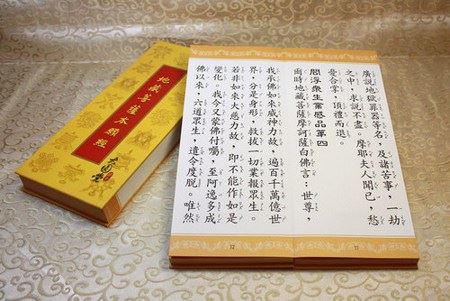 地藏菩薩本願經
廣說地獄罪器等名，及諸苦事，一劫
之中，求說不盡。摩耶夫人聞已，愁
憂合掌，頂禮而退。
閻浮眾生業感品第四
爾時地藏菩薩摩訶薩白佛言：世尊，
我承佛如來威神力故，遍百千萬億世
界，分身是形，救拔一切業報眾生。
若非如來大慈力故，即不能作如是
變化。我今又蒙佛付囑，至阿逸多成
佛以來，六道眾生，遣令度脫。唯然